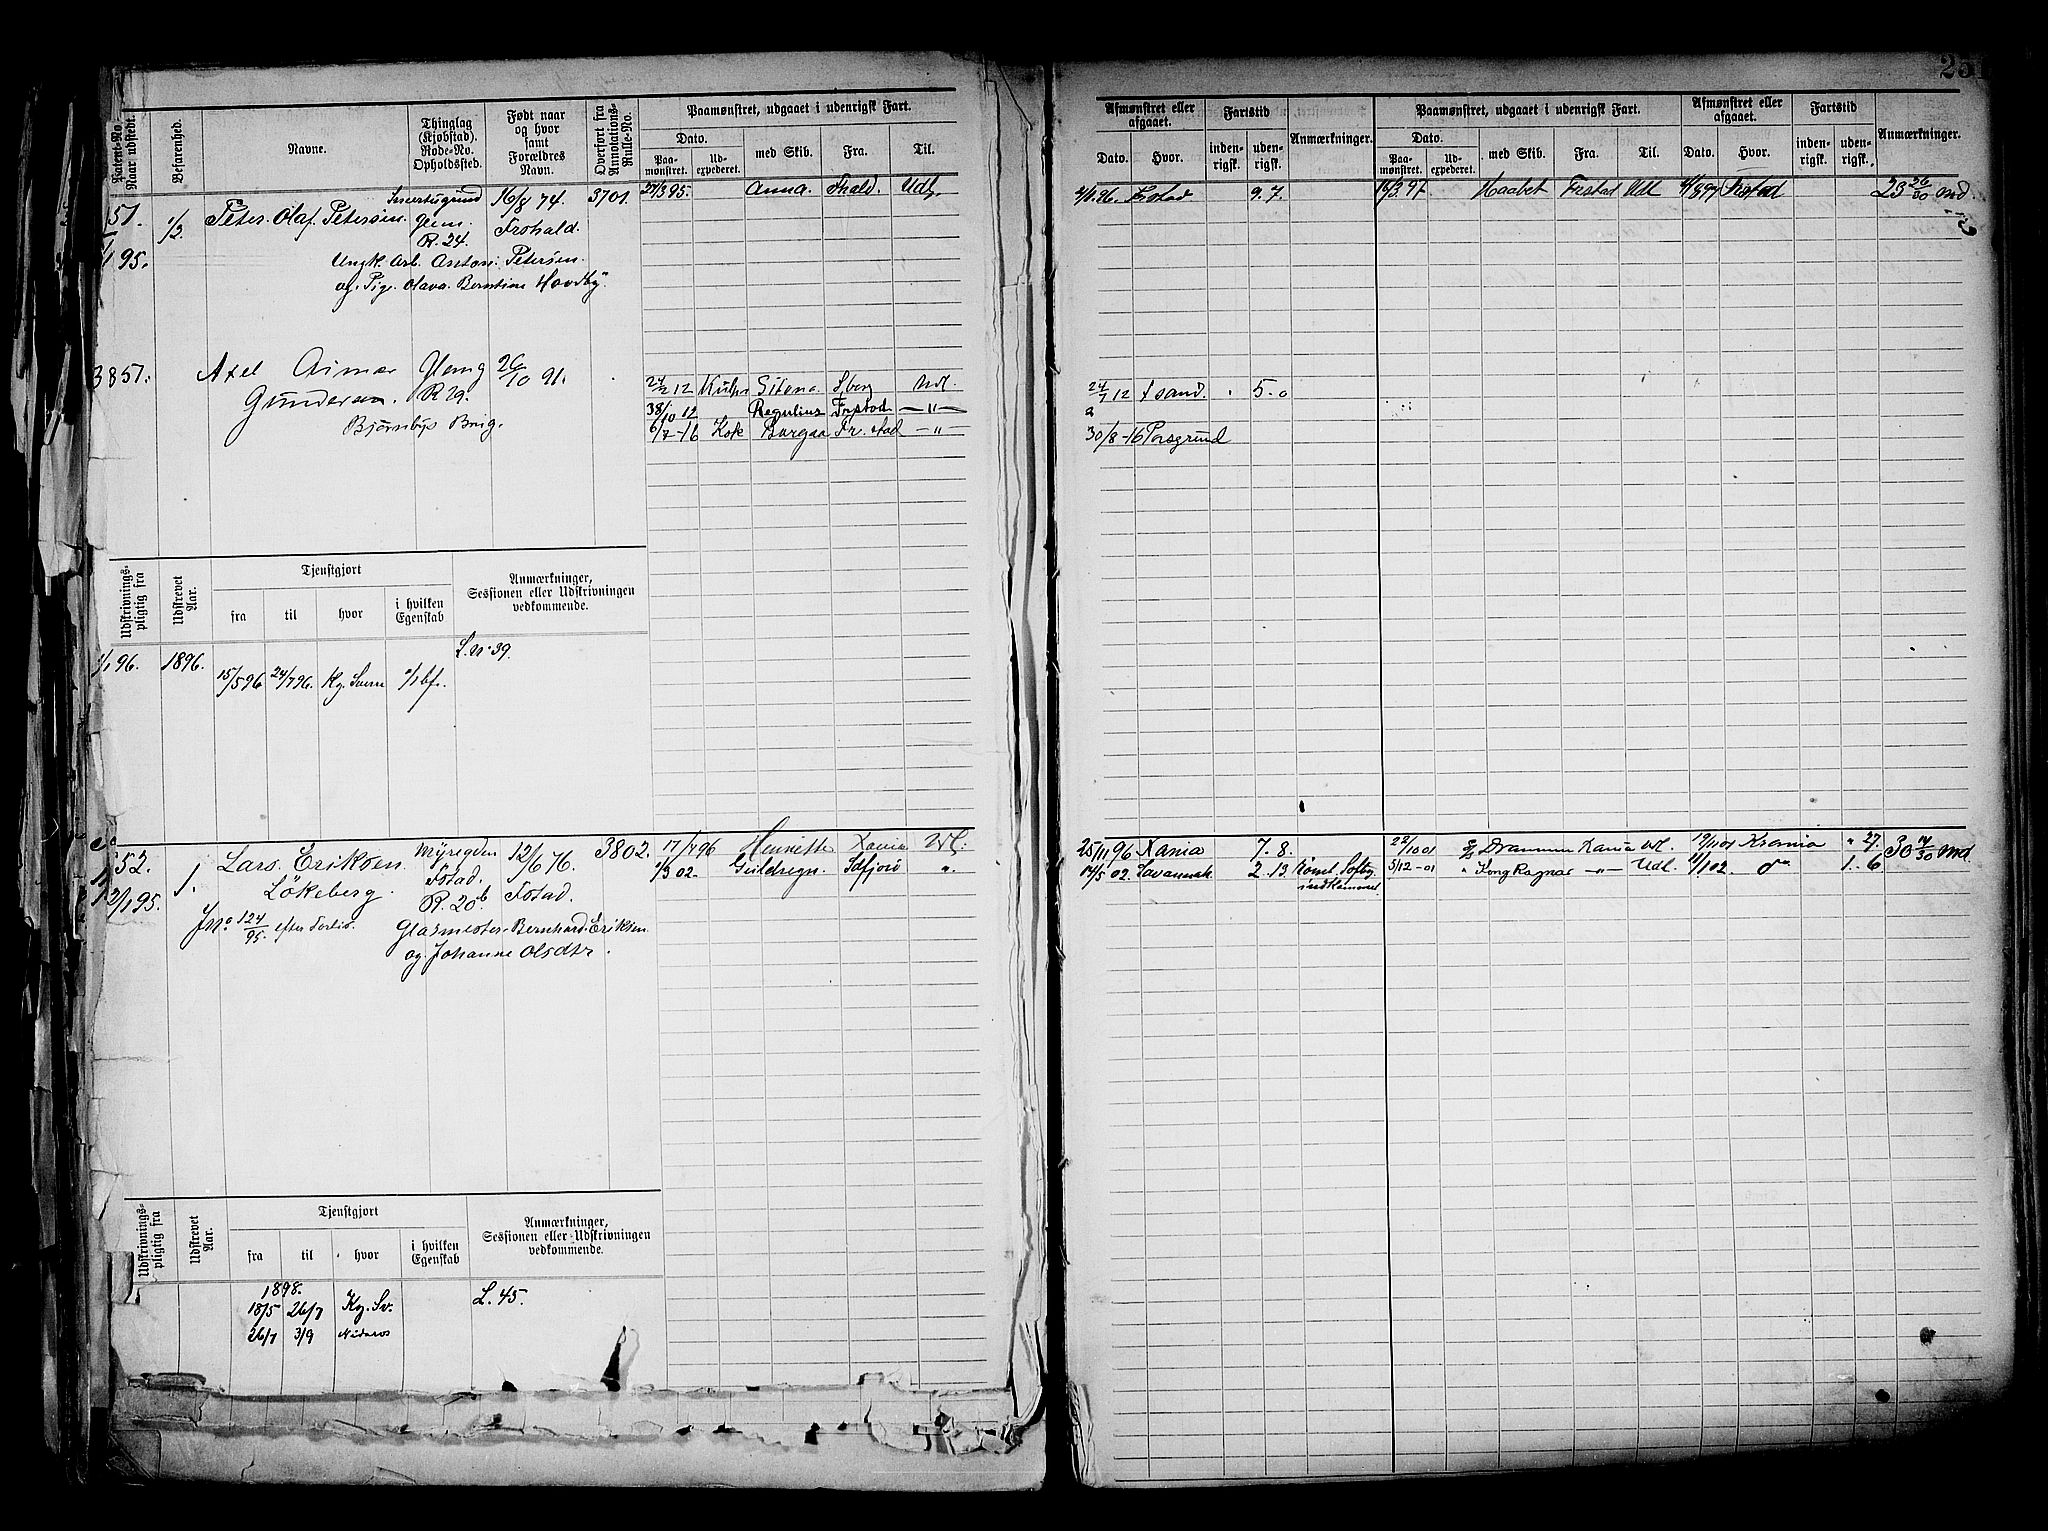 251
Patent-No. Naar udstedt.
Befarenhed.
Navne.
Thinglag (Kjøbstad). Rode-No. Opholdssted.
Født naar og hvor samt Forældres Navn.
Overført fra Annotations-Rulle-No.
Paamønstret, udgaaet i udenrigsk Fart.
Dato.
Paamønstret. Udexpederet. med Skib. Fra. Til.
Afmønstret eller afgaaet.
Dato. Hvor.
Fartstid
indenrigsk. udenrigsk.
Anmærkninger.
Paamønstret, udgaaet i udenrigsk Fart.
Dato.
Paamønstret. Udexpederet. med Skib. Fra. Til.
Afmønstret eller afgaaet.
Dato. Hvor.
Fartstid
indenrigsk. udenrigsk.
Anmærkninger.
51. 1/2 Peter Olaf Petersen Glem R. 24. 16/8 74. Frohald. 3701. 27/3 95. Anna. Fhald. Udl.
Frstad 9. 7. Haabet Frstad Udl Frstad 23 26/30 md.
1/1 95.
Ungk. Arb. Anton Petersen
og Pige Olava Berntine Hovdby.
3857. Axel Gunderson. Glemg R 29. 26/10 91.
Bjørnbys Brig.
24/2 12 Sitona Udl.
24/7 12 5.0
10 12 Regulus Frstad —"—
6/7-16 Kok Borgaa Fr.stad —"—
30/8-16 Porsgrund
Udskrivningspligtig fra
Udskrevet Aar.
Tjenstgjort
fra til hvor i hvilken Egenskab
Anmærkninger, Sessionen eller Udskrivningen vedkommende.
1/1 96. 1896. 15/5 96 24/7 96. Kg. Sverre
L.No 39.
52. 1. Lars Eriksen Lökeberg Myregden Fstad. R. 20b 12/6 76. Fstad. 3802. 17/7 96 Henriette Xania Udl.
25/11 96 Xania 7. 8. 22/10 01 Drammen Xania Udl. 19/11 01 Krania " 27. 30 14/30 md
1/3 02. Guldregn. Idfjord "
14/5 02. Savannah 2. 13. 5/12-01 " Kong Ragnar —"— Udl. 11/1 02. do 1. 6
12/1 95.
JNo 124/95. efter Forlis.
Glasmester Bernhard Eriksen
og Johanne Olsdtr.
Udskrivningspligtig fra
Udskrevet Aar.
Tjenstgjort
fra til hvor i hvilken Egenskab
Anmærkninger, Sessionen eller Udskrivningen vedkommende.
1898.
18/5 26/7 Kg. Sv. L. 45.
26/7 3/9 Nidaros